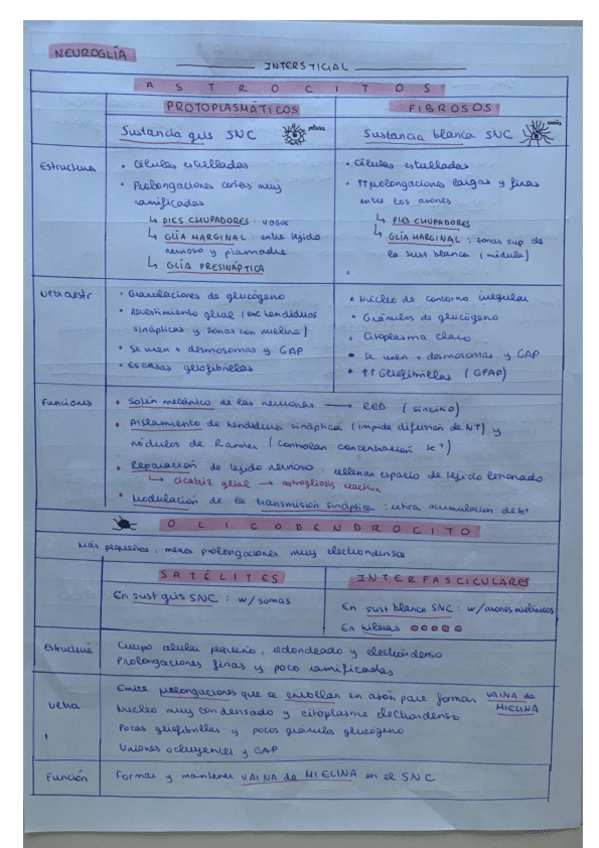 NEUROGLÍA
INTERSTICIAL
ASTROCITOS
PROTOPLASMÁTICOS
FIBROSOS
Sustancia gris SNC
Sustancia blanca SNC
Estructura
• Células estrelladas
• Prolongaciones cortas muy
ramificadas
↳ PIES CHUPADORES: vasos
↳ GLÍA MARGINAL: entre tejido
nervioso y piamadre
↳ GLÍA PRESINÁPTICA
• Células estrelladas
• ↑↑prolongaciones largas y finas
entre los axones
↳ PIES CHUPADORES
↳ GLÍA MARGINAL: zonas sup de
la sust blanca (médula)
Ultraestr
• Granulaciones de glucógeno
• Revestimiento glial (exc hendiduras
sinápticas y zonas con mielina)
• Se unen + desmosomas y GAP
• Escasas gliofibrillas
• Núcleo de contorno irregular
• Gránulos de glucógeno
• Citoplasma claro
• Se unen + desmosomas y GAP
• ↑↑ Gliofibrillas (GFAP)
Funciones
• Sostén mecánico de las neuronas → RED (sincino)
• Aislamiento de hendidura sináptica (impide difusión de NT) y
nódulos de Ranvier (controlan concentración K⁺)
• Reparación de tejido nervioso: rellenan espacio de tejido lesionado
↳ cicatriz glial → astrogliosis reactiva
• Modulación de la transmisión sináptica: retira acumulación de K⁺
OLIGODENDROCITO
Más pequeños, menos prolongaciones muy electrondensa
SATÉLITES
INTERFASCICULARES
En sust gris SNC: w/somas
En sust blanca SNC: w/axones mielínicos
En hileras
Estructura
Cuerpo celular pequeño, redondeado y electróndenso
Prolongaciones finas y poco ramificadas
Ultra
Emite prolongaciones que se enrollan en axón para formar VAINA de
MIELINA
Núcleo muy condensado y citoplasma electrondenso
Pocas gliofibrillas y pocos gránulos glucógeno
Uniones ocluyentes y GAP
Función
Formar y mantener VAINA de MIELINA en el SNC